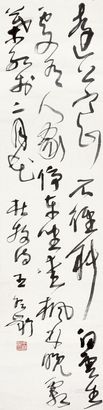 遠上寒山石徑斜白雲生
處有人家停車坐愛楓林晚霜
葉紅於二月花 杜牧詩 王